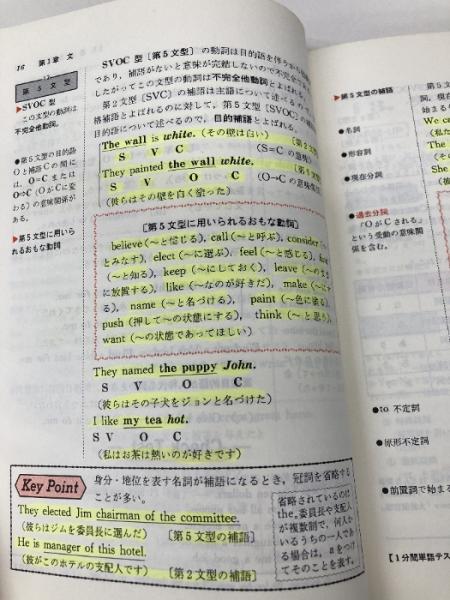 16 第1章 文
第 5 文 型
▶SVOC 型
この文型の動詞は
不完全他動詞。
●第5文型の目的語
Oと補語Cの間に
は、O=Cまたは
O→C(OがCに変
わる)の意味関係が
ある。
▶第5文型に用いら
れるおもな動詞
SVOC 型〔第5文型〕の動詞は目的語を伴う
であり，補語がないと意味が完結しないので不完全
したがってこの文型の動詞は不完全他動詞とよばれる。
第2文型〔SVC〕の補語は主語について述べるので
格補語とよばれるのに対して，第5文型〔SVOC〕の
目的語について述べるので，目的補語とよばれる。
The wall is white. (その壁は白い) 〔第2文
S V C (S=Cの意味
They painted the wall white. 〔第5文型
S V O C (O→C の意味
(彼らはその壁を白く塗った)
〔第5文型に用いられるおもな動詞〕
believe (〜と信じる), call (〜と呼ぶ), consider
とみなす), elect (〜に選ぶ), feel (〜と感じる),
(〜と知る), keep (〜にしておく), leave (〜のま
に放置する), like (〜なのが好きだ), make (〜に
る), name (〜と名づける), paint (〜色に塗る),
push (押して〜の状態にする), think (〜と思う),
want (〜の状態であってほしい)
They named the puppy John.
S V O C
(彼らはその子犬をジョンと名づけた)
I like my tea hot.
S V O C
(私はお茶は熱いのが好きです)
Key Point
身分・地位を表す名詞が補語になるとき，冠詞を省略する
ことが多い。
They elected Jim chairman of the committee.
(彼らはジムを委員長に選んだ) 〔第5文型の補語〕
He is manager of this hotel.
(彼がこのホテルの支配人です) 〔第2文型の補語〕
省略されているのは
the。委員長や支配人
が複数制で，何人か
いるうちの一人であ
る場合は，aをつけ
てそのことを表す。
▶第5文型の補語
●名詞
●形容詞
●現在分詞
●過去分詞
「OがCされる」
という受動の意味関
係を含む。
●to 不定詞
●原形不定詞
●前置詞で始まる
【1分間単語テス